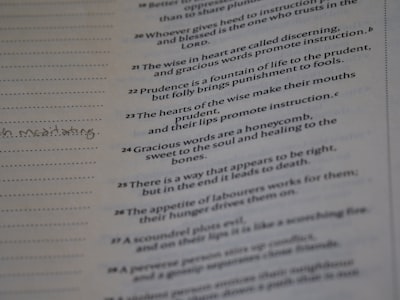 19 Better to
oppress
than to share plunder
20 Whoever gives heed to instruction
and blessed is the one who trusts in the
LORD.
21 The wise in heart are called discerning,
and gracious words promote instruction. b
22 Prudence is a fountain of life to the prudent,
but folly brings punishment to fools.
23 The hearts of the wise make their mouths
prudent,
and their lips promote instruction. c
meditating.
24 Gracious words are a honeycomb,
sweet to the soul and healing to the
bones.
25 There is a way that appears to be right,
but in the end it leads to death.
26 The appetite of labourers works for them;
their hunger drives them on.
27 A scoundrel plots evil,
and on their lips it is like a scorching fire.
28 A perverse person stirs up conflict,
and a gossip separates close friends.
A violent person entices their neighbour
them down a path that is not